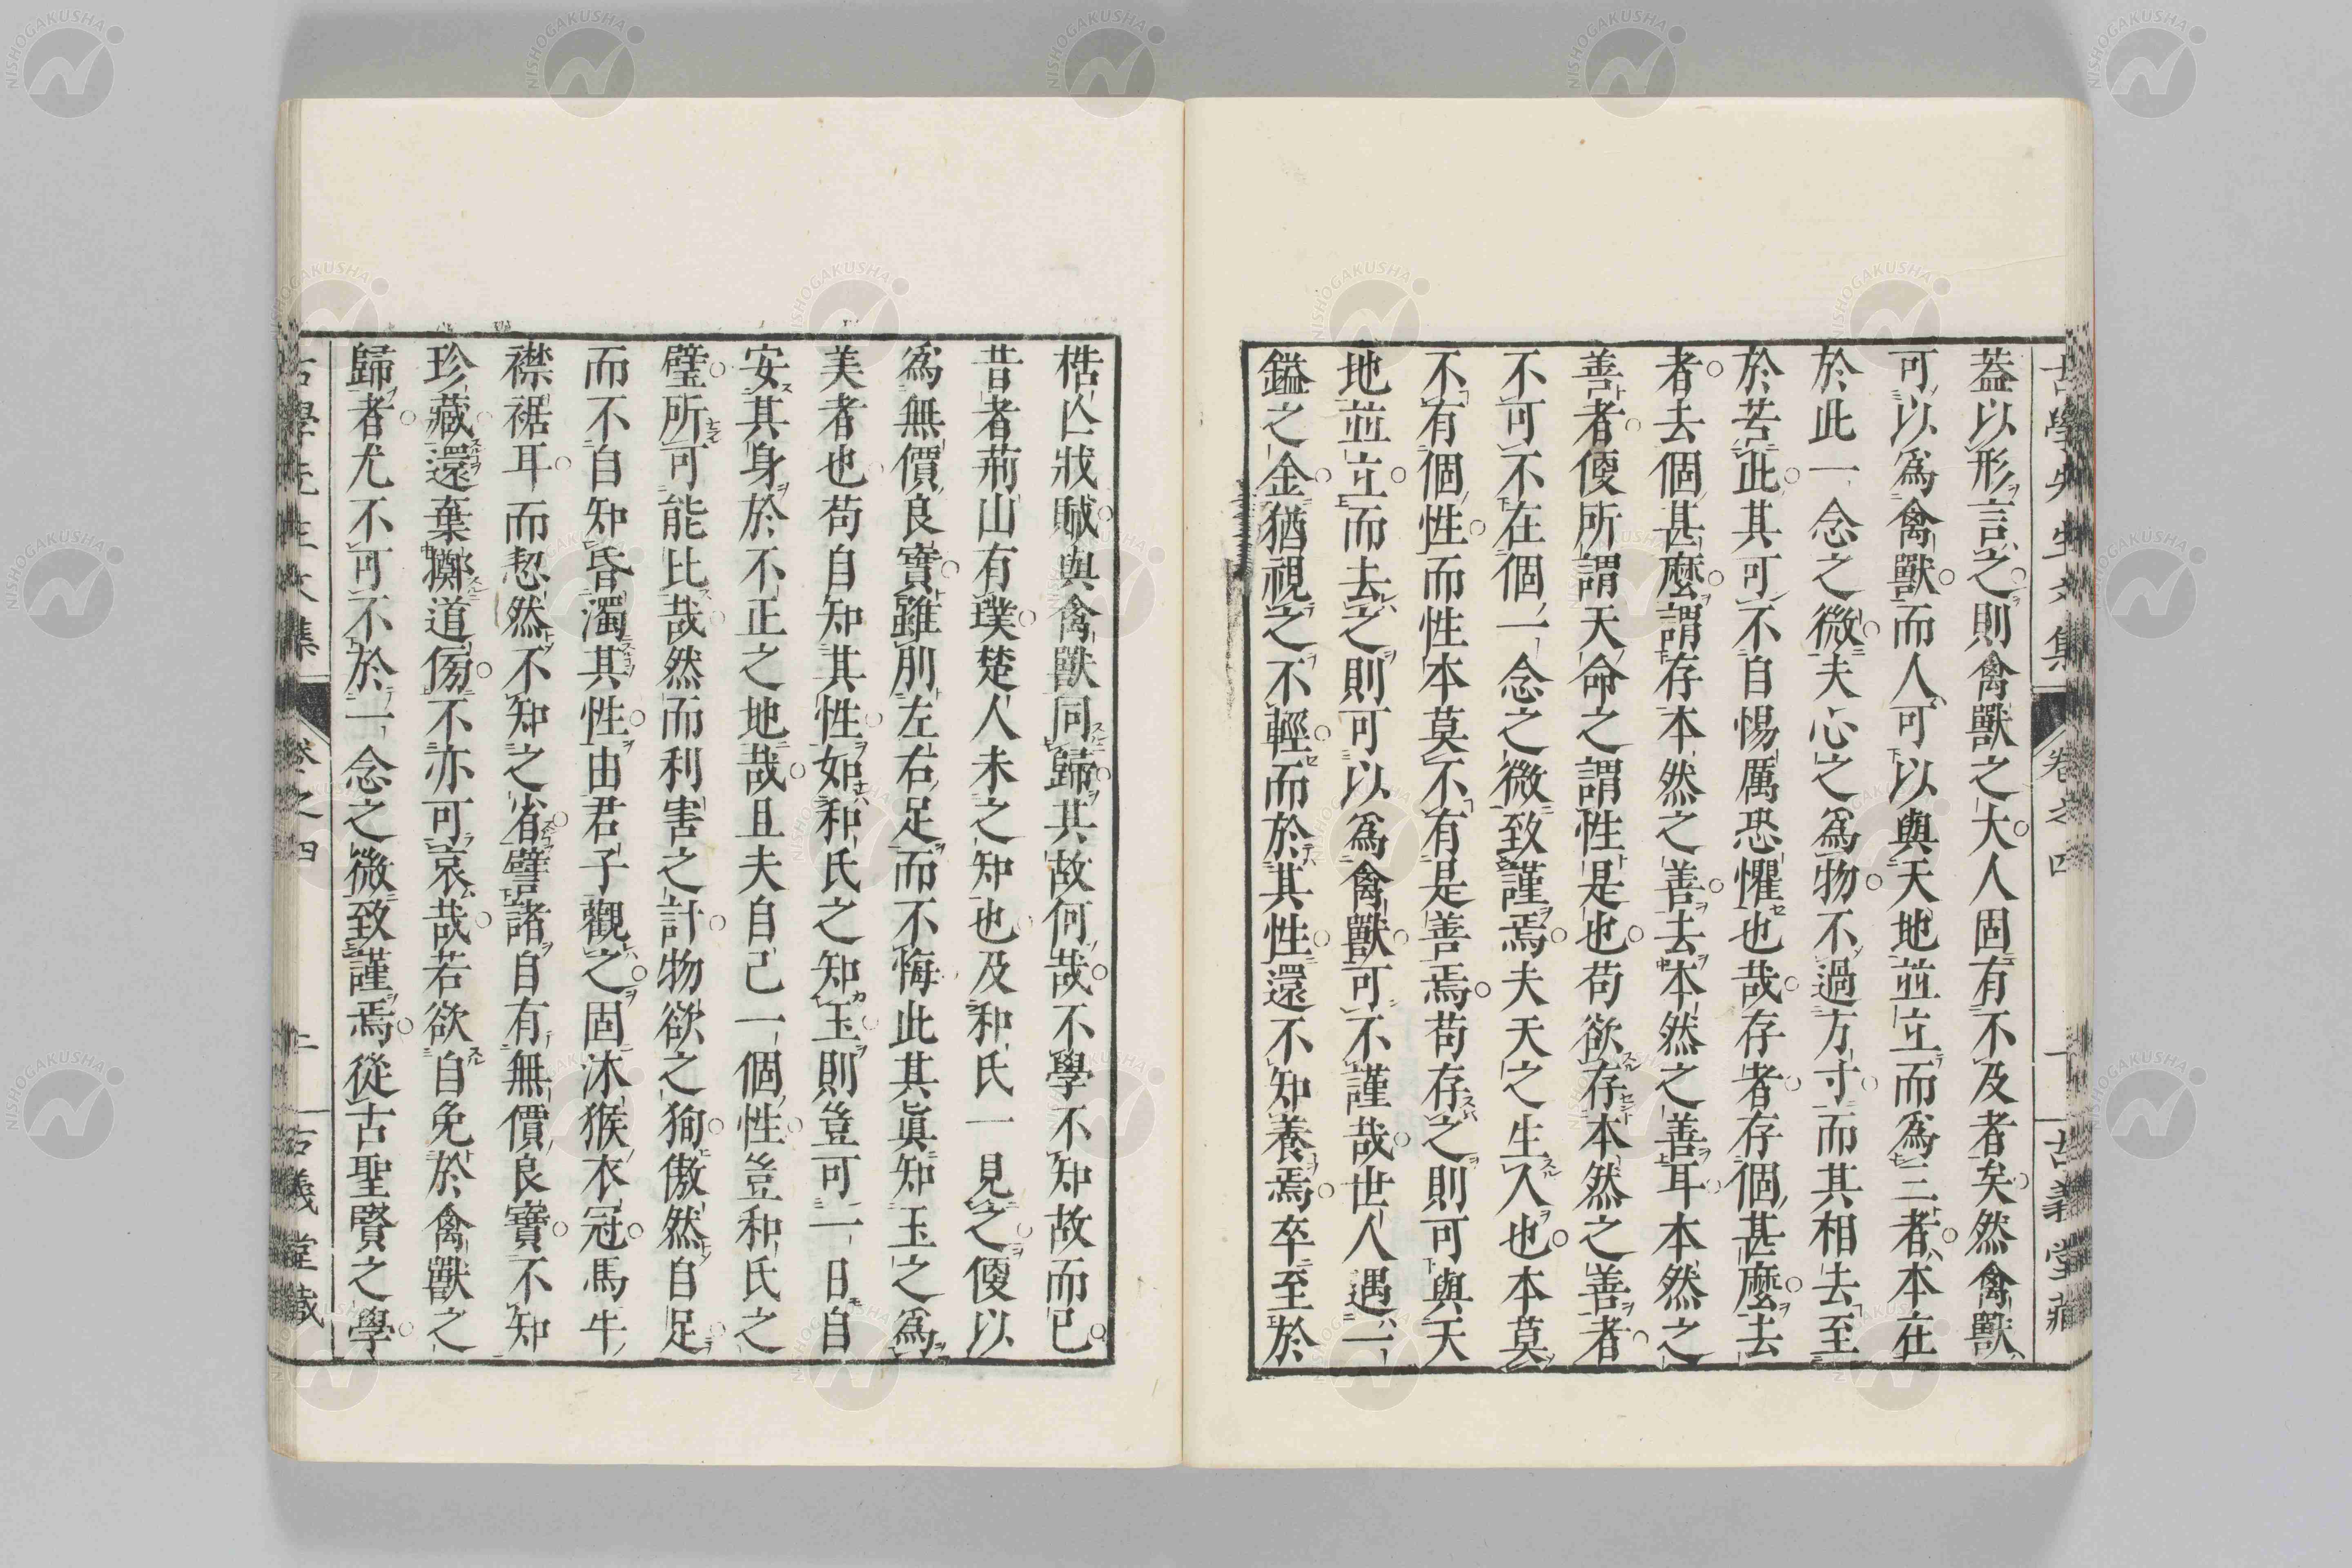 古學先生文集 卷之四 古義堂藏
葢以形言之則禽獸之大人固有不及者矣然禽獸
可以爲禽獸而人可以與天地並立而爲三者本在
於此一念之微夫心之爲物不過方寸而其相去至
於若此其可不自惕厲恐懼也哉存者存個甚麼去
者去個甚麼謂存本然之善去本然之善耳本然之
善者便所謂天命之謂性是也苟欲存本然之善者
不可不在個一念之微致謹焉夫天之生人也本莫
不有個性而性本莫不有是善焉苟存之則可與天
地並立而去之則可以爲禽獸可不謹哉世人遇一
鎰之金猶視之不輕而於其性還不知養焉卒至於
梏亾戕賊與禽獸同歸其故何哉不學不知故而已
昔者荊山有璞楚人未之知也及和氏一見之便以
爲無價良寶雖刖左右足而不悔此其眞知玉之爲
美者也苟自知其性如和氏之知玉則豈可一日自
安其身於不正之地哉且夫自己一個性豈和氏之
璧所可能比哉然而利害之計物欲之狥傲然自足
而不自知昏濁其性由君子觀之固沐猴衣冠馬牛
襟裾耳而恝然不知之省譬諸自有無價良寶不知
珍藏還棄擲道傍不亦可哀哉若欲自免於禽獸之
歸者尤不可不於一念之微致謹焉從古聖賢之學
古學先生文集 卷之四 二 古義堂藏
NISHOGAKUSHA